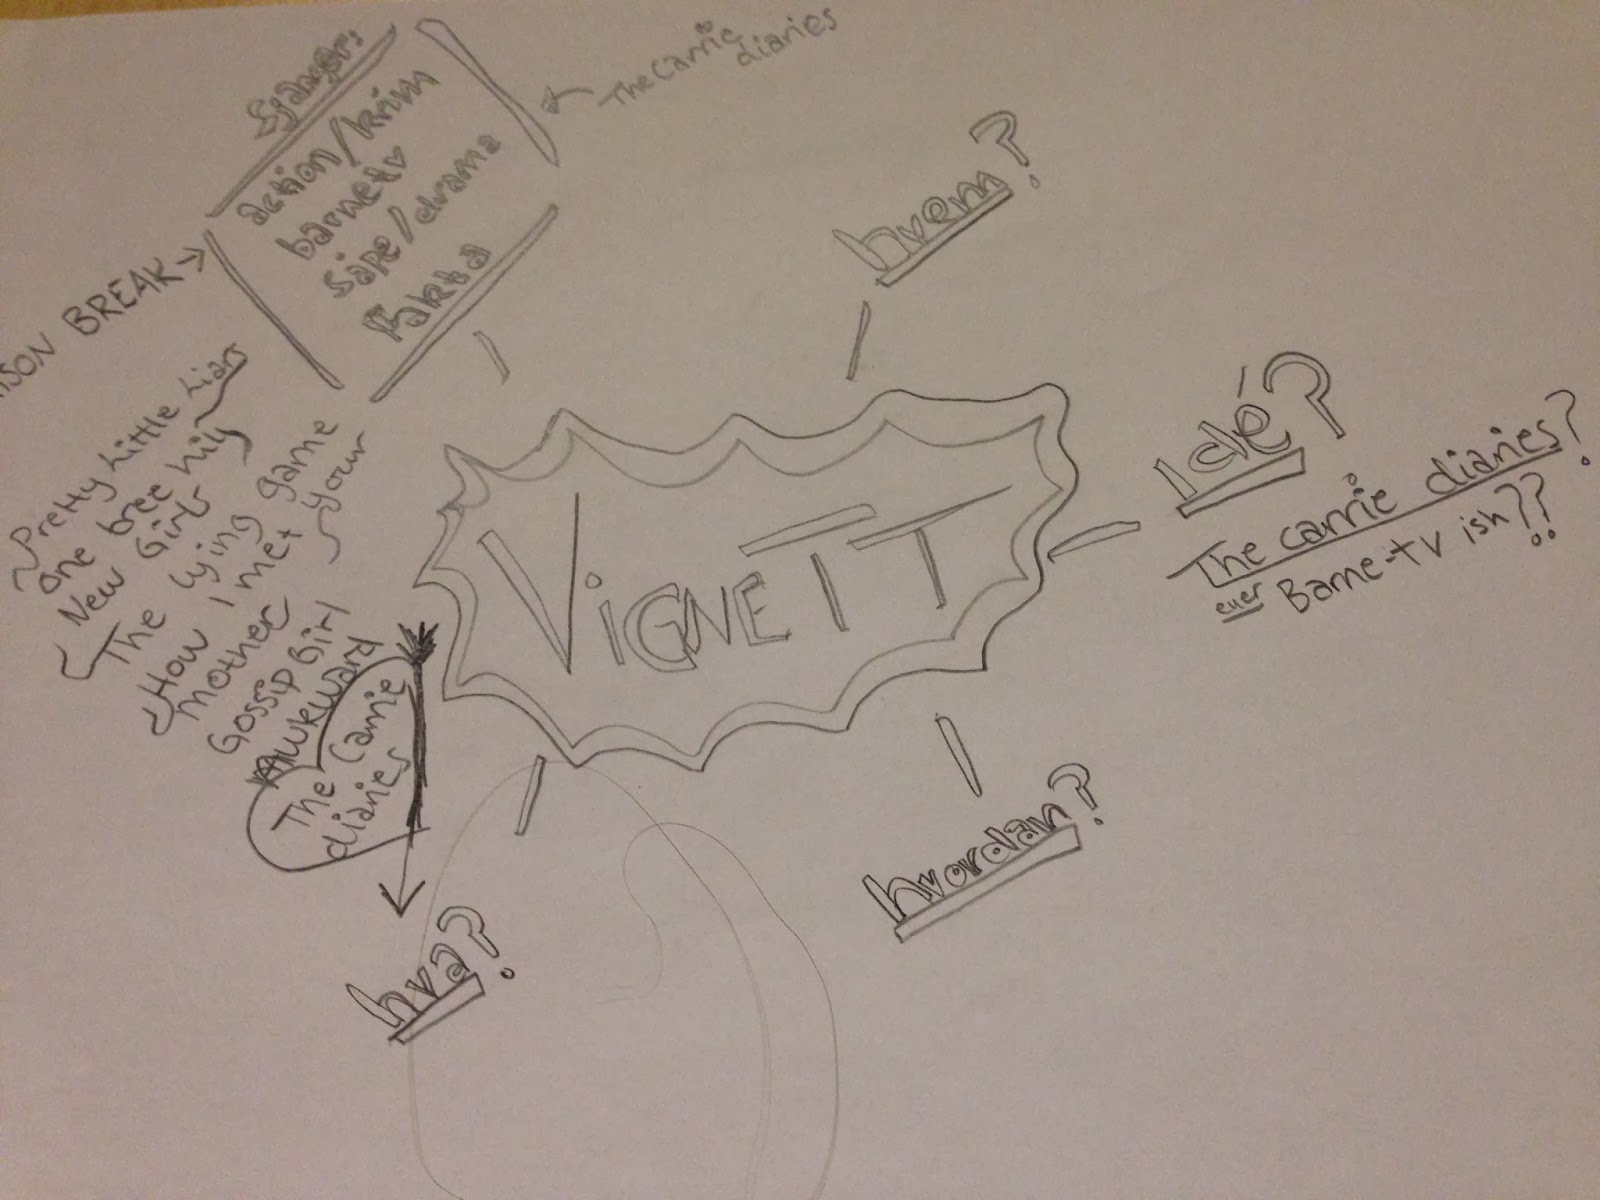 Sjanger:
action/krim
barnetv
såpe/drama
Fakta
The Carrie
diaries
ISON BREAK
hvem?
Idé?
The carrie diaries?
eller Barne-tv ish??
VIGNETT
Pretty Little Liars
One tree hill
New Girl
The lying game
How I met your
mother
Gossip Girl
Awkward
The Carrie
diaries
hvordan?
hva?